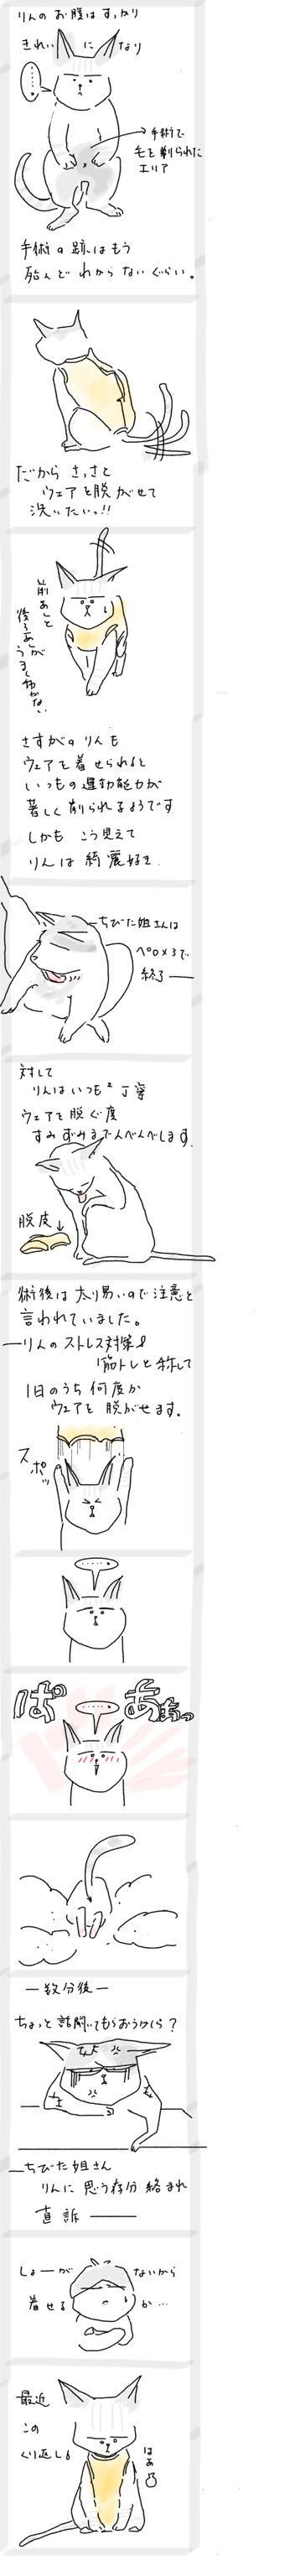 りんのお腹はすっかり
きれいになり
……
→手術で
毛を剃られた
エリア
手術の跡はもう
殆んどわからないぐらい。
だからさっさと
ウェアを脱がせて
洗いたいっ!!
前あしと
後ろあしが
うまく動かない
さすがのりんも
ウェアを着せられると
いつもの運動能力が
著しく削られるようです
しかも こう見えて
りんは綺麗好き
ちびた姐さんは
ペロ×3で
終了――
対して
りんはいつも丁寧
ウェアを脱ぐ度
すみずみまでんべんべします
脱皮↓
術後は太り易いので注意と
言われていました。
―りんのストレス対策&
筋トレと称して
1日のうち何度か
ウェアを脱がせます。
スポッ
……
ぱあぁっ
……
―数分後―
ちょっと話聞いてもらおうかしら?
―ちびた姐さん
りんに思う存分絡まれ
直訴――
しょーがないから
着せるか…
最近
この
くり返し
はぁ